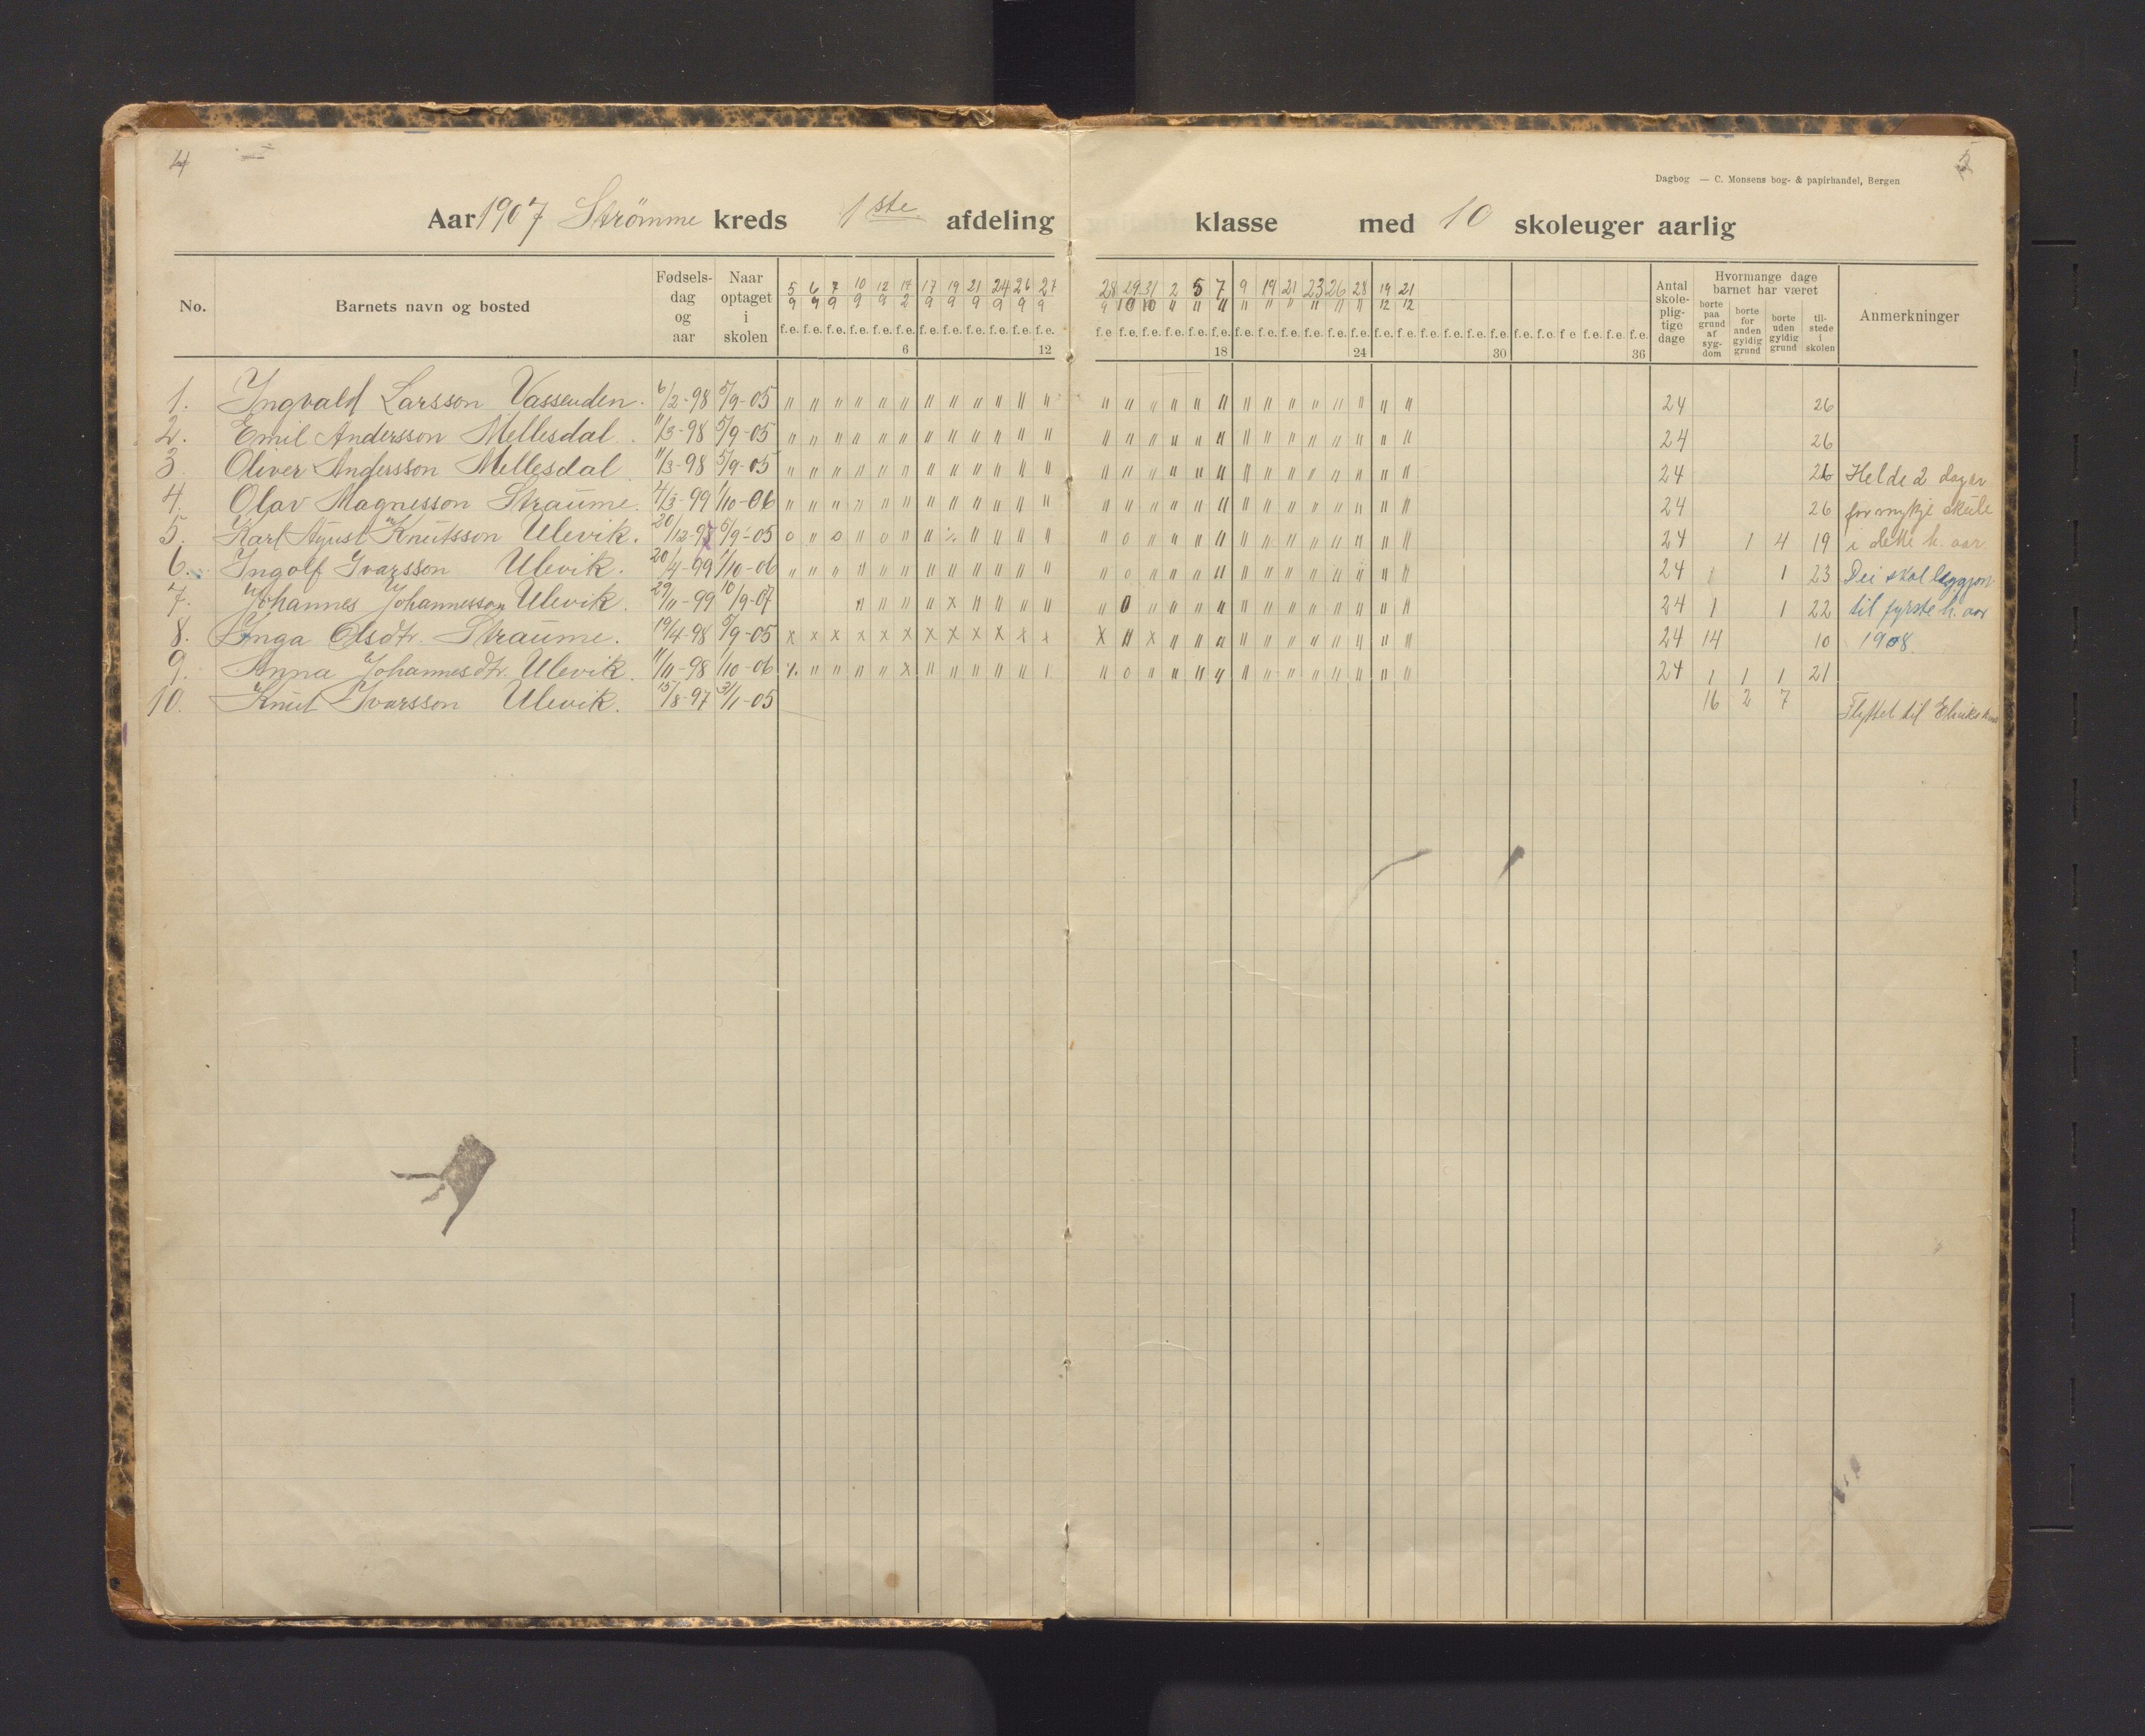 4
Dagbog — C. Monsens bog- & papirhandel, Bergen
Aar 1907 Strømme kreds 1ste afdeling klasse med 10 skoleuger aarlig
No. Barnets navn og bosted Fødsels-dag og aar Naar optaget i skolen
5/9 6/9 7/9 10/9 12/9 14/2 17/9 19/9 21/9 24/9 26/9 27/9 28/9 29/10 31/10 2/" 5/" 7/" 9/" 19/" 21/" 23/" 26/" 28/" 19/12 21/12
f.e. f.e. f.e. f.e. f.e. f.e. f.e. f.e. f.e. f.e. f.e. f.e. f.e f.e. f.e. f.e. f.e. f.e. f.e. f.e. f.e. f.e. f.e. f.e. f.e. f.e. f.e. f.e. f.e. f.e. f.e. f.e. f e f.e. f.e. f.e.
6 12 18 24 30 36
Antal skole-plig-tige dage
Hvormange dage barnet har været
borte paa grund af syg-dom
borte for anden gyldig grund
borte uden gyldig grund
til-stede i skolen
Anmerkninger
1. Ingvald Larsson Vassenden. 6/2-98 5/9-05 " " " " " " " " " " " " " " " " " " " " " " " " " " 24 26
2. Emil Andersson Mellesdal. 11/3-98 5/9-05 " " " " " " " " " " " " " " " " " " " " " " " " " " 24 26
3 Oliver Andersson Mellesdal 11/3-98 5/9-05 " " " " " " " " " " " " " " " " " " " " " " " " " " 24 26 Helde 2 dagar
4. Olav Magnesson Straume. 4/3-99 1/10-06 " " " " " " " " " " " " " " " " " " " " " " " " " " 24 26 for mykje skule
5. Karl Agust Knutsson Ulevik. 20/12-97 5/9-05 o " o " o " " % " " " " " o " " " " " " " " " " " " 24 1 4 19 i dette h. aar
6. Ingolf Ivarsson Ulevik. 20/4-99 1/10-06 " " " " " " " " " " " " " o " " " " " " " " " " " " 24 1 23 Dei skal leggjast
7. Johannes Johannesson Ulevik. 29/11-99 10/9-07 " " " " x " " " " " o " " " " " " " " " " " " 24 1 1 22 til fyrste h. aar
8. Inga Olsdtr. Straume. 19/4-98 5/9-05 x x x x x x x x x x x x x " x " " " " " " " " " " " 24 14 10 1908.
9. Anna Johannesdtr. Ulevik. 11/11-98 1/10-06 % " " " " x " " " " " | " o " " " " " " " " " " " " 24 1 1 1 21
16 2 7
10. Knut Ivarsson Ulevik. 15/8-97 31/1-05 Flyttet til